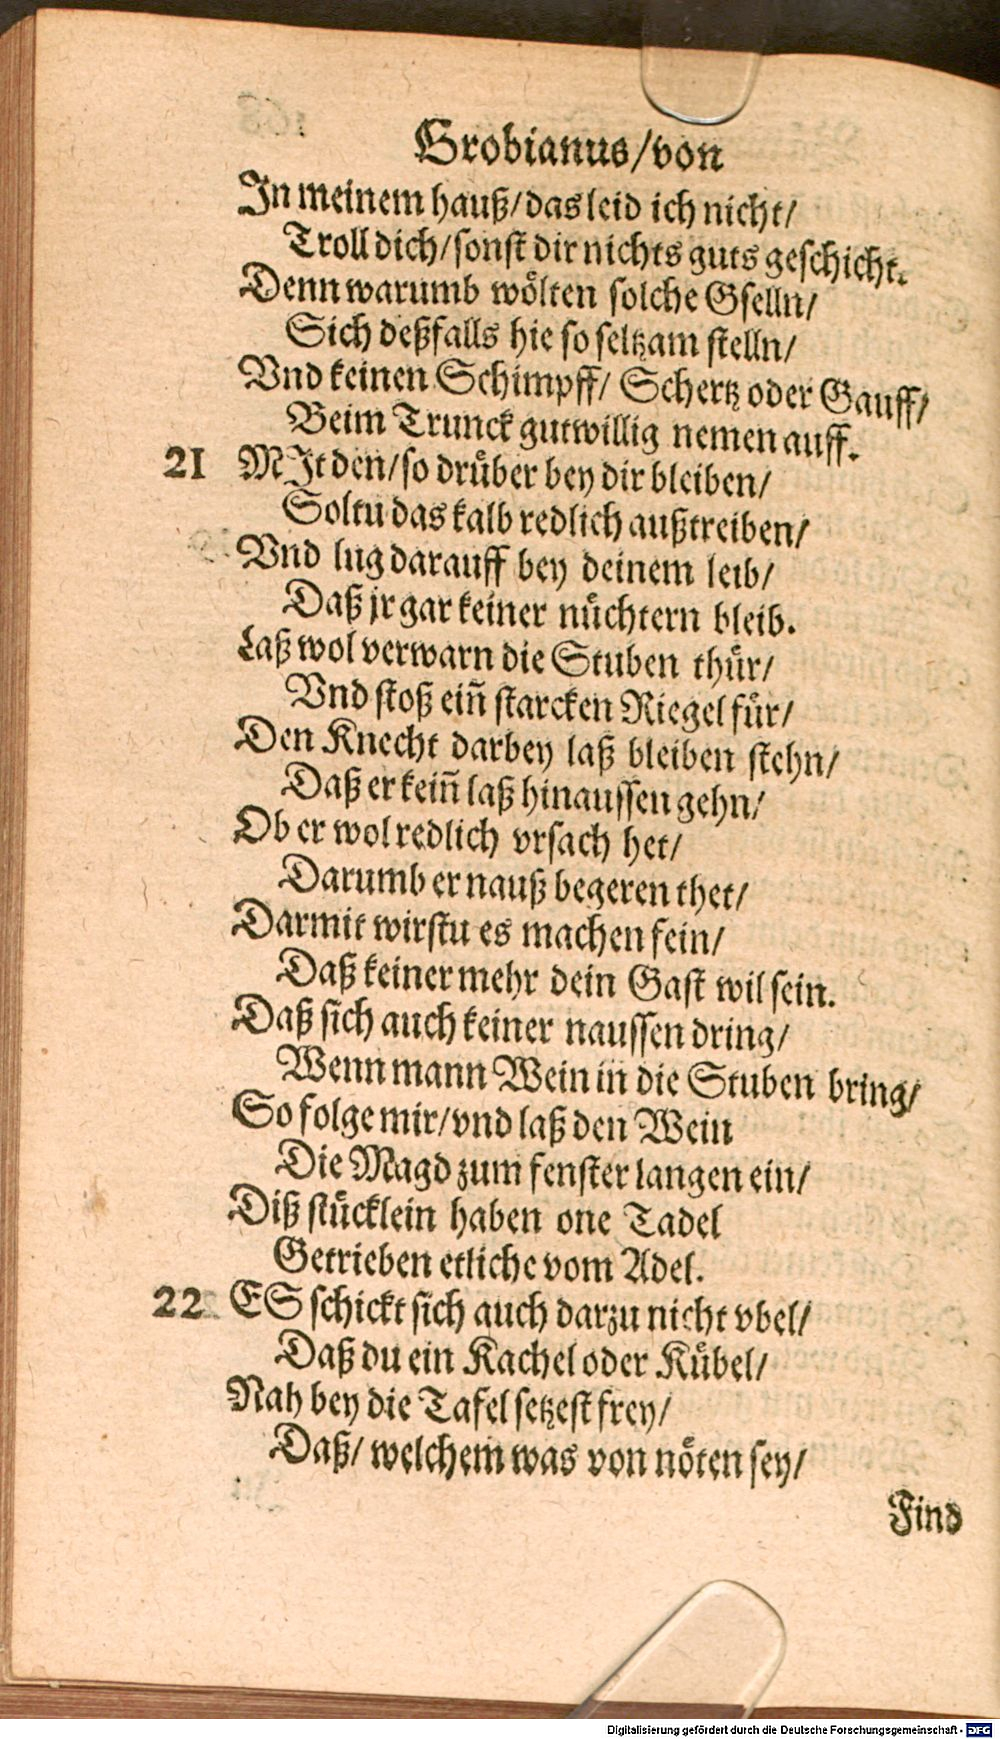 Grobianus/von
In meinem hauß/das leid ich nicht/
Troll dich/sonst dir nichts guts geschicht.
Denn warumb wölten solche Gselln/
Sich deßfalls hie so seltzam stelln/
Vnd keinen Schimpff/ Schertz oder Gauff/
Beim Trunck gutwillig nemen auff.
21 MIt den/so drüber bey dir bleiben/
Soltu das kalb redlich außtreiben/
Vnd lug darauff bey deinem leib/
Daß jr gar keiner nüchtern bleib.
Laß wol verwarn die Stuben thür/
Vnd stoß ein̄ starcken Riegel für/
Den Knecht darbey laß bleiben stehn/
Daß er kein̄ laß hinaussen gehn/
Ob er wol redlich vrsach het/
Darumb er nauß begeren thet/
Darmit wirstu es machen fein/
Daß keiner mehr dein Gast wil sein.
Daß sich auch keiner naussen dring/
Wenn mann Wein in die Stuben bring/
So folge mir/vnd laß den Wein
Die Magd zum fenster langen ein/
Diß stücklein haben one Tadel
Getrieben etliche vom Adel.
22 ES schickt sich auch darzu nicht vbel/
Daß du ein Kachel oder Kübel/
Nah bey die Tafel setzest frey/
Daß/ welchem was von nöten sey/
Find
Digitalisierung gefördert durch die Deutsche Forschungsgemeinschaft - DFG